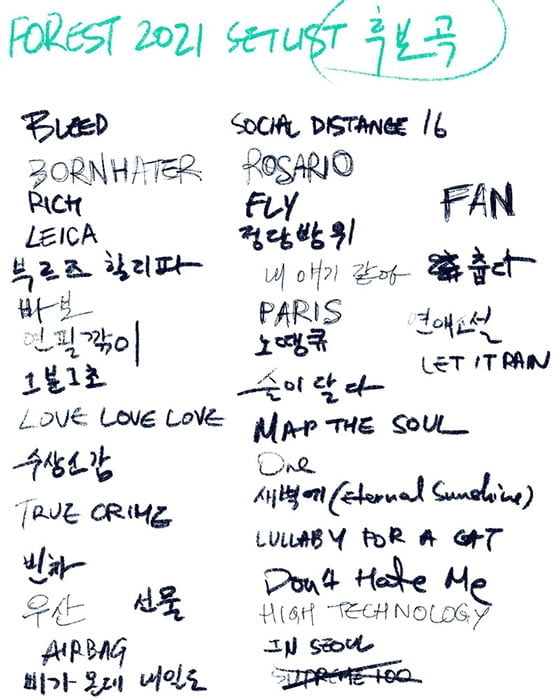 FOREST 2021 SETLIST 후보곡
BLEED
BORNHATER
RICH
LEICA
부르즈 할리파
바보
연필깎이
1분1초
LOVE LOVE LOVE
수상소감
TRUE CRIME
빈차
우산
선물
AIRBAG
비가온대 내일도
SOCIAL DISTANCE 16
ROSARIO
FLY
정당방위
내 얘기 같아
PARIS
노땡큐
술이 달다
MAP THE SOUL
One
새벽에 (Eternal Sunshine)
LULLABY FOR A CAT
Don't Hate Me
HIGH TECHNOLOGY
IN SEOUL
SUPREME 100
FAN
춥다
연애소설
LET IT RAIN